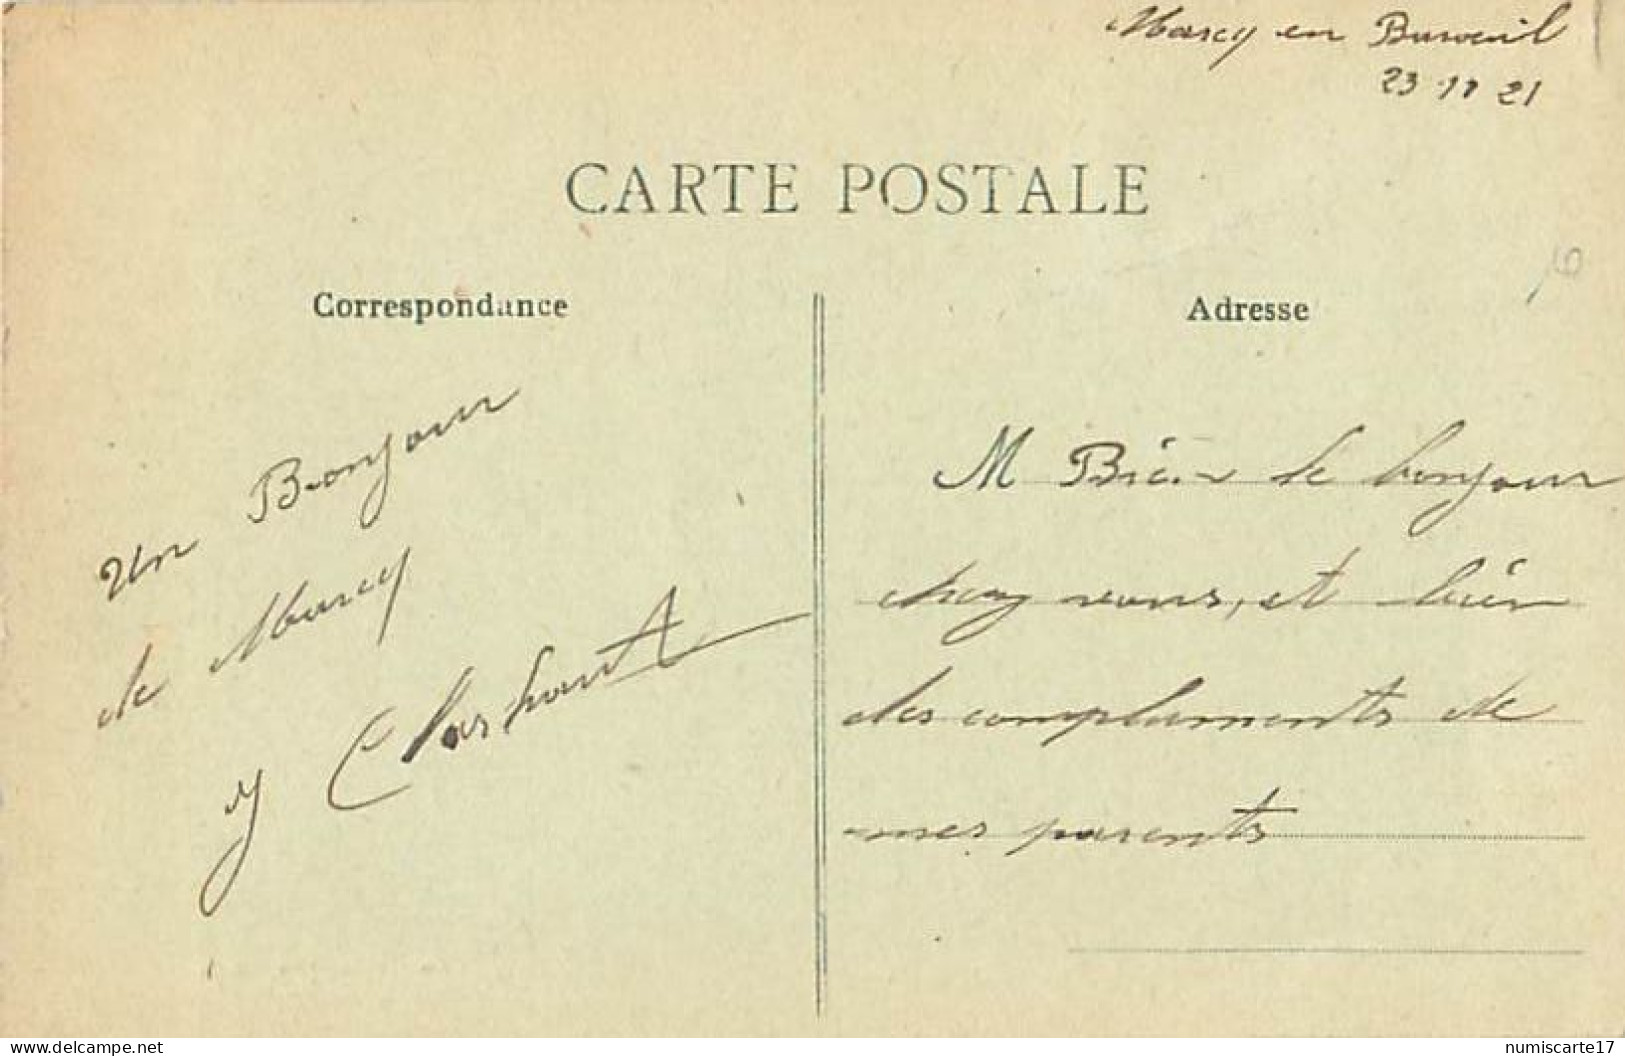 Marcy en Bareuil
23 11 21
CARTE POSTALE
Correspondance
Adresse
Un Bonjour
de Marcy
M Bien le bonjour
chez vous, et bien
des complements de
mes parents
www.delcampe.net
numiscarte17